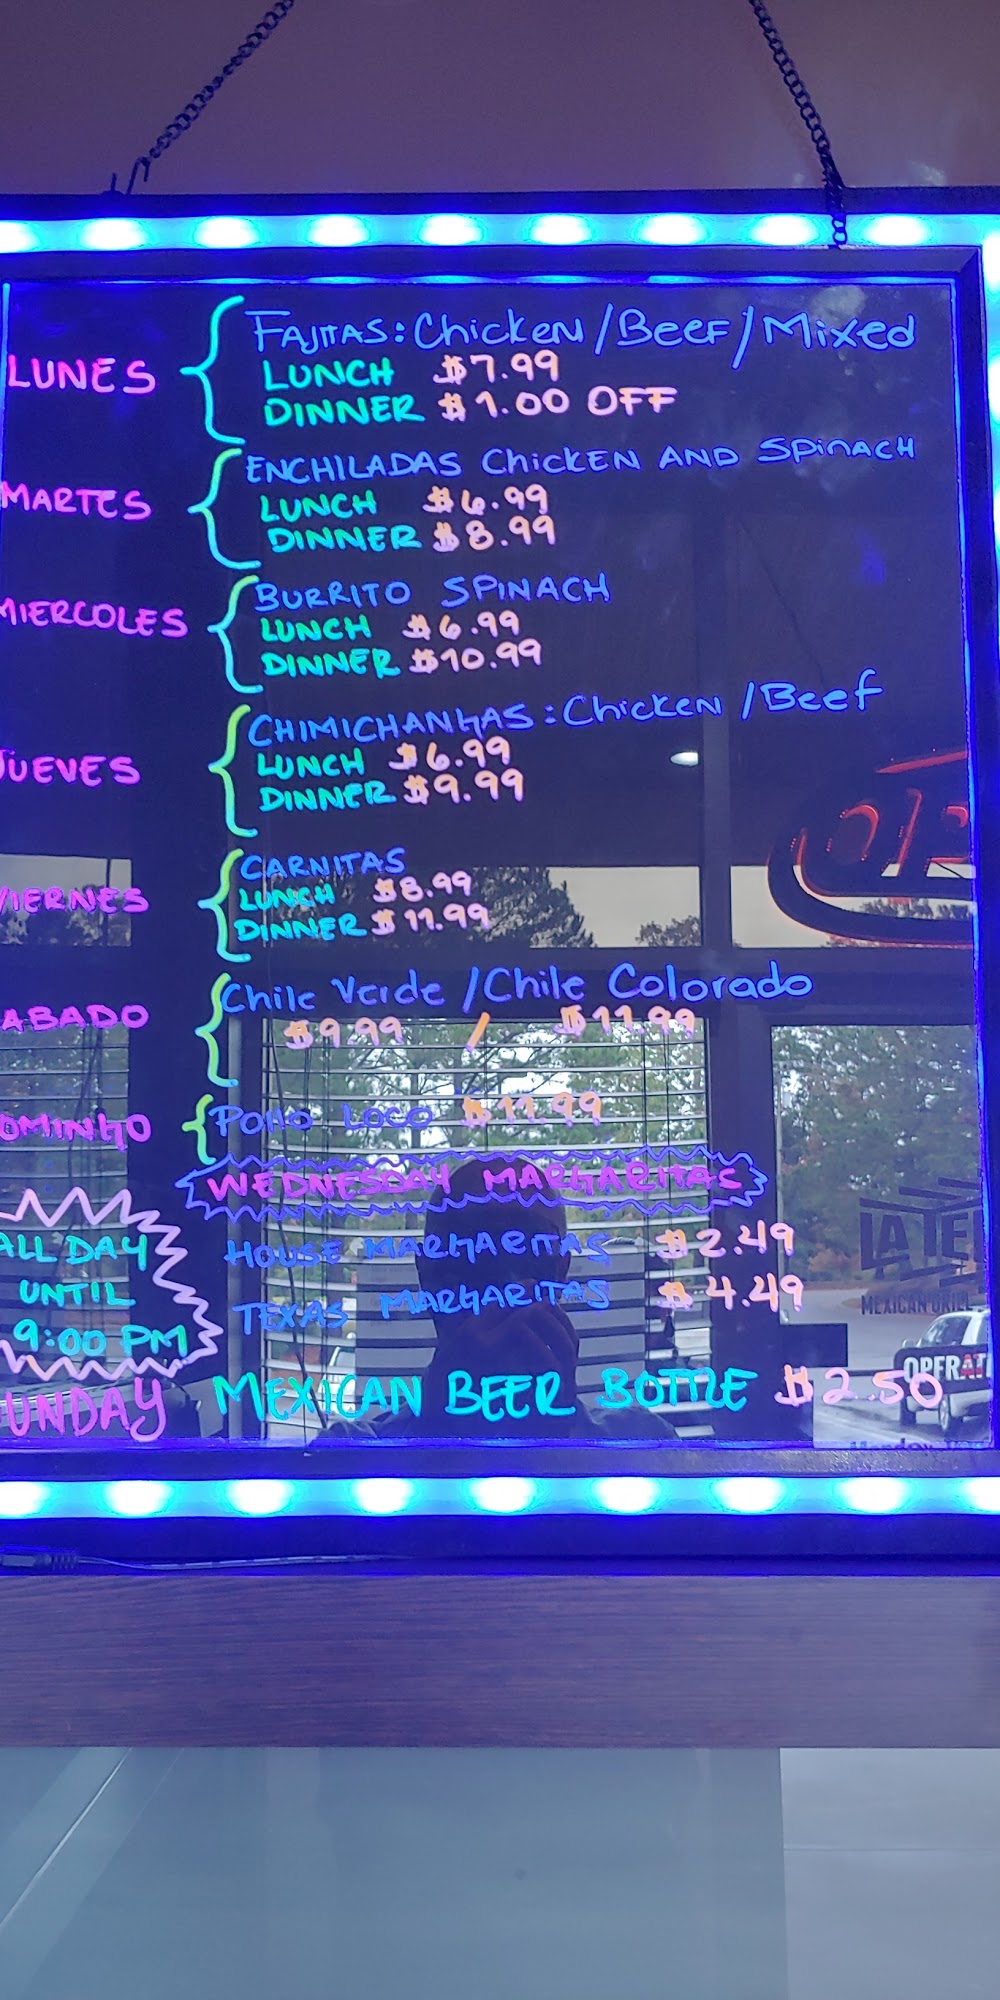 LUNES
FAJITAS: Chicken/Beef/Mixed
LUNCH $7.99
DINNER $1.00 OFF
MARTES
ENCHILADAS Chicken AND Spinach
LUNCH $6.99
DINNER $8.99
MIERCOLES
BURRITO SPINACH
LUNCH $6.99
DINNER $10.99
JUEVES
CHIMICHANGAS: Chicken/Beef
LUNCH $6.99
DINNER $9.99
VIERNES
CARNITAS
LUNCH $8.99
DINNER $11.99
ABADO
Chile Verde/Chile Colorado
$9.99 / $11.99
OMINGO
Pollo LOCO $11.99
WEDNESDAY MARGARITAS
ALL DAY
UNTIL
9:00 PM
HOUSE MARGARITAS $2.49
TEXAS MARGARITAS $4.49
UNDAY MEXICAN BEER BOTTLE $2.50
OPE
LA TE
MEXICAN GRILL
OPERAT